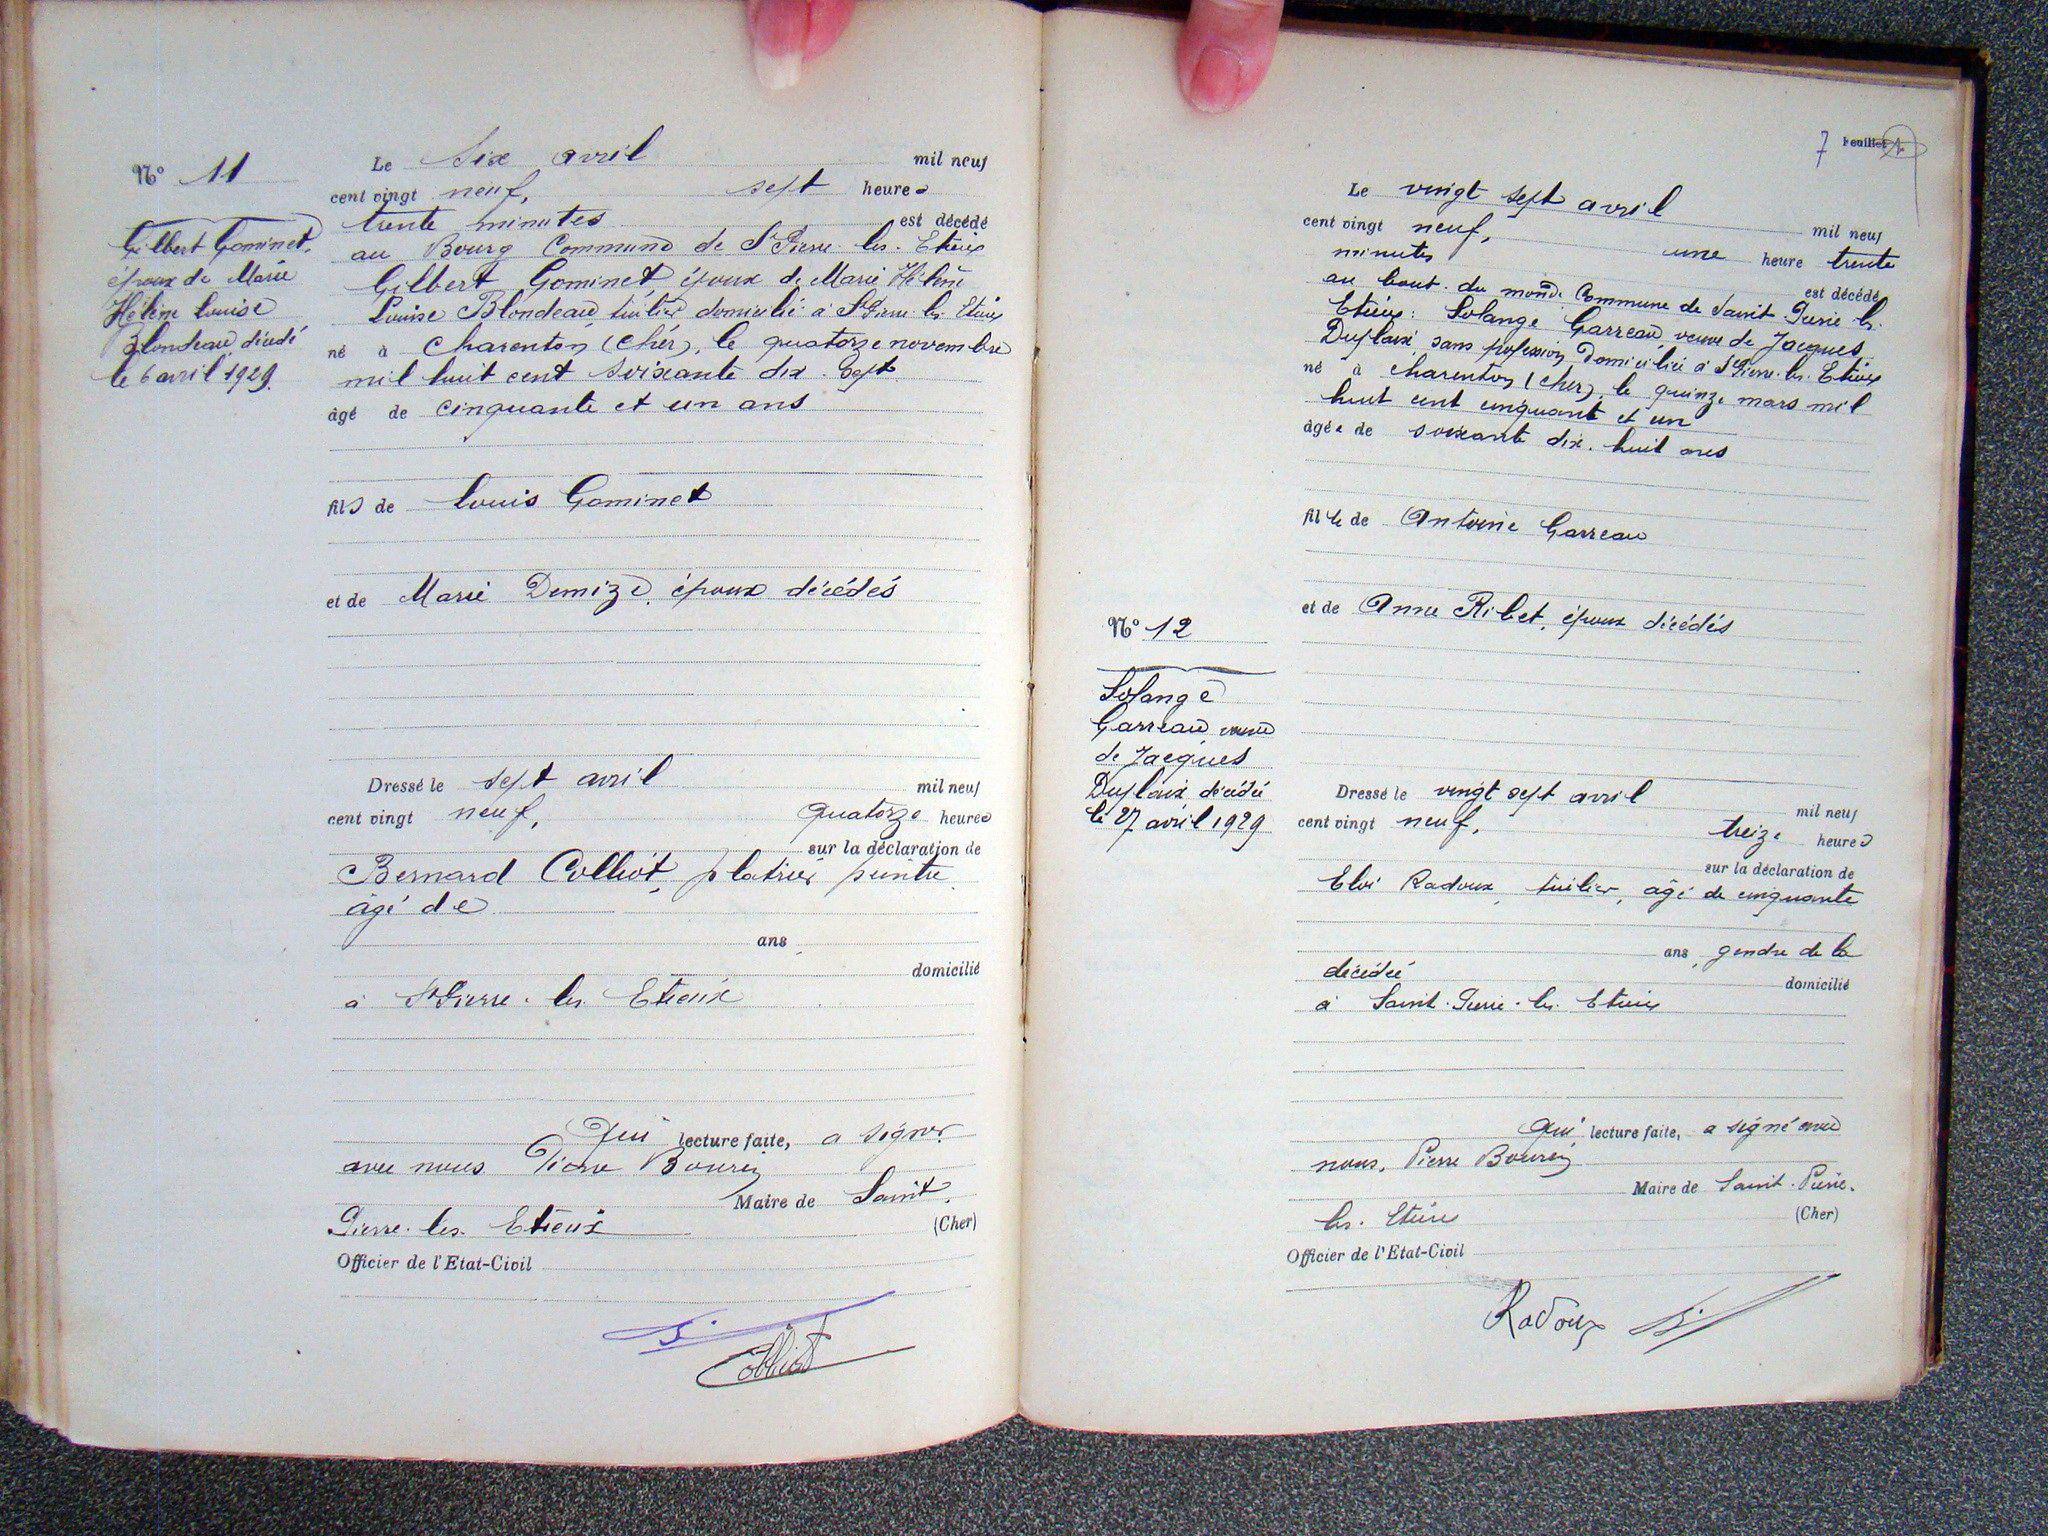 N° 11
Gilbert Gominet,
époux de Marie
Hélène Louise
Blondeau, décédé
le 6 avril 1929.
Le six avril mil neuf
cent vingt neuf, sept heures
trente minutes est décédé
au Bourg Commune de St Pierre-les-Etieux
Gilbert Gominet, époux de Marie Hélène
Louise Blondeau, tuilier domicilié à St Pierre-les-Etieux
né à Charenton (Cher), le quatorze novembre
mil huit cent soixante dix-sept
âgé de cinquante et un ans
fils de Louis Gominet
et de Marie Demize, époux décédés
Dressé le sept avril mil neuf
cent vingt neuf, quatorze heures
sur la déclaration de
Bernard Colliot, platrier peintre
âgé de
ans
domicilié
à St Pierre-les-Etieux
Qui lecture faite, a signé
avec nous Pierre Bourin
Maire de Saint-
Pierre-les-Etieux (Cher)
Officier de l'Etat-Civil
Colliot
7 Feuillet
Le vingt sept avril mil neuf
cent vingt neuf, une heure trente
minutes est décédé
au bout du monde Commune de Saint Pierre les-
Etieux: Solange Garreau, veuve de Jacques
Duplaix, sans profession, domiciliée à St Pierre-les-Etieux
né à Charenton (Cher), le quinze mars mil
huit cent cinquante et un
âgée de soixante dix-huit ans
fille de Antoine Garreau
et de Anne Ribet, époux décédés
N° 12
Solange
Garreau veuve
de Jacques
Duplaix décédée
le 27 avril 1929
Dressé le vingt sept avril mil neuf
cent vingt neuf, treize heures
sur la déclaration de
Eloi Radoux, tuilier, âgé de cinquante
ans, gendre de la
décédée domicilié
à Saint-Pierre-les-Etieux
Qui lecture faite, a signé avec
nous, Pierre Bourin
Maire de Saint-Pierre-
les-Etieux (Cher)
Officier de l'Etat-Civil
Radoux